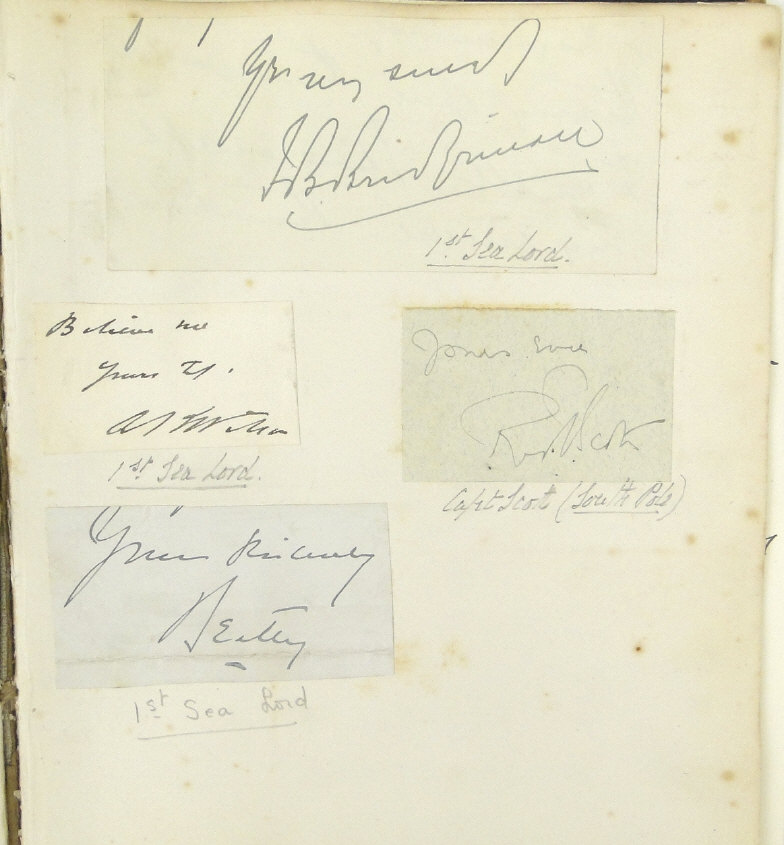 Yrs very sincerely
1st Sea Lord.
Believe me
Yours
A K Wilson
1st Sea Lord.
Yours Ever
R. Scott
Capt Scott (South Pole)
Yours Sincerely
Beatty
1st Sea Lord